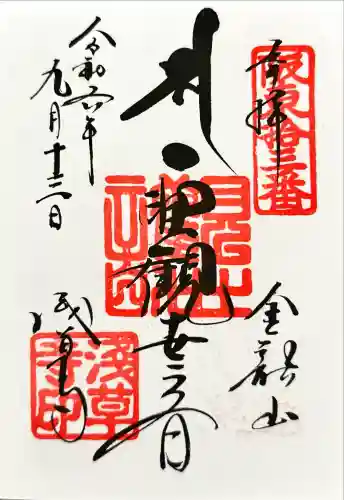 奉拝
坂東拾三番
金龍山
聖観世音
浅草寺
浅草寺印
令和六年
九月十二日